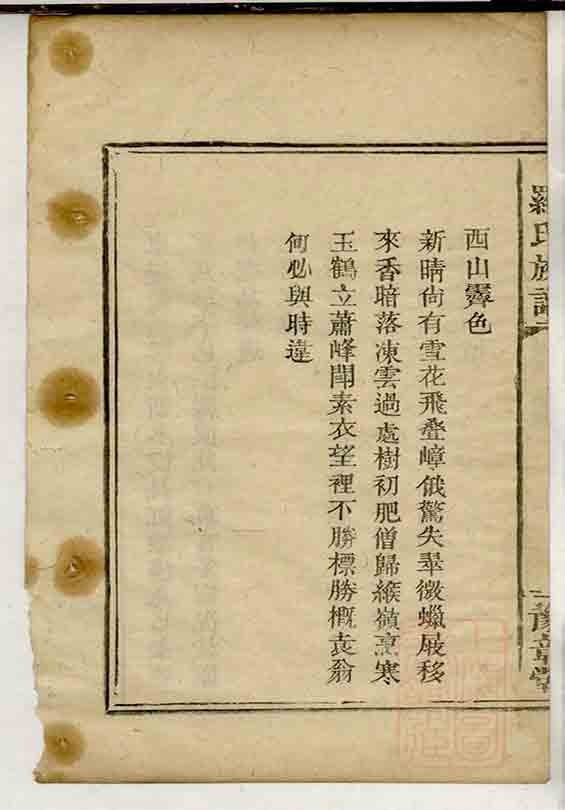 羅氏族譜
豫章堂
西山霽色
新晴尙有雪花飛叠嶂俄驚失翠微蠟屐移
來香暗落凍雲過處樹初肥僧歸緱嶺烹寒
玉鶴立蕭峰閗素衣望裡不勝標勝概袁翁
何必與時違